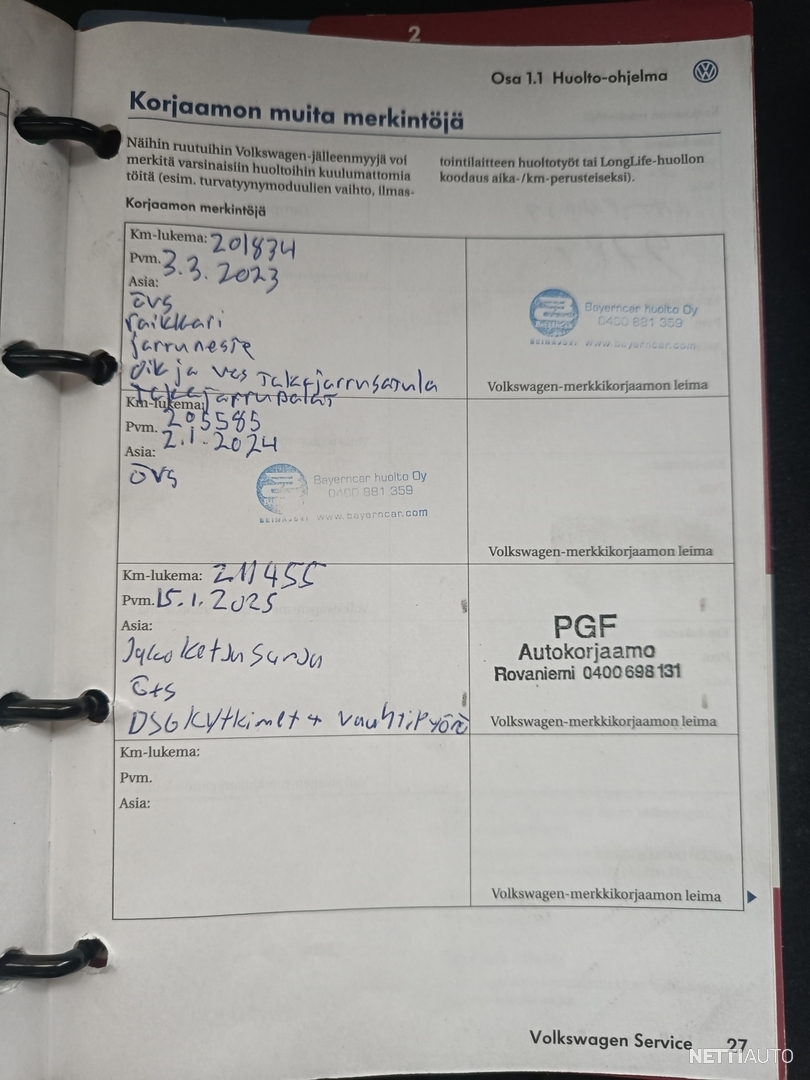 2
Osa 1.1 Huolto-ohjelma
Korjaamon muita merkintöjä
Näihin ruutuihin Volkswagen-jälleenmyyjä voi
merkitä varsinaisiin huoltoihin kuulumattomia
töitä (esim. turvatyynymoduulien vaihto, ilmas-
tointilaitteen huoltotyöt tai LongLife-huollon
koodaus aika-/km-perusteiseksi).
Korjaamon merkintöjä
Km-lukema: 201834
Pvm. 3.3.2023
Asia:
övs
raikkari
jarruneste
oik ja vas takajarrusatula
takajarrupalat
Bayerncar huolto Oy
0400 881 359
SEINÄJOKI www.bayerncar.com
Volkswagen-merkkikorjaamon leima
Km-lukema: 205585
Pvm. 2.1.2024
Asia:
övs
Bayerncar huolto Oy
0400 881 359
SEINÄJOKI www.bayerncar.com
Volkswagen-merkkikorjaamon leima
Km-lukema: 211455
Pvm. 15.1.2025
Asia:
Jakoketjusarja
Ö+s
DSG Kytkimet + vauhtipyörä
PGF
Autokorjaamo
Rovaniemi 0400 698 131
Volkswagen-merkkikorjaamon leima
Km-lukema:
Pvm.
Asia:
Volkswagen-merkkikorjaamon leima
Volkswagen Service 27
NETTIAUTO